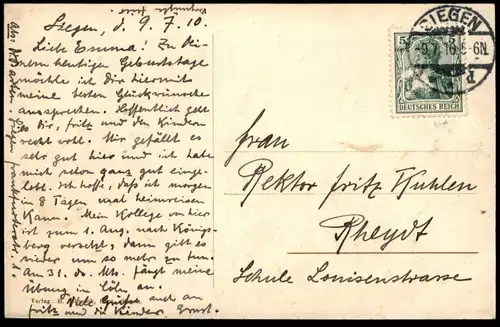 Siegen, d. 9.7.10.
Liebe Emma! Zu Dei-
nem heutigen Geburtstage
möchte ich Dir hiermit
meine besten Glückwünsche
aussprechen. Hoffentlich geht
es Dir, Fritz und den Kindern
recht wohl. Mir gefällt es
sehr gut hier und ich habe
mich schon ganz gut einge-
lebt. Ich hoffe, daß ich morgen
in 8 Tagen mal heimreisen
kann. Mein Kollege von hier
ist zum 1. Aug. nach Königs-
berg versetzt, dann gibt es
wieder um so mehr zu tun.
Am 31. ds. Mts. fängt meine
Übung in Cöln an.
Viele Grüße auch an
Fritz und die Kinder Ernst.
Siegen Frankfurterstr.
Verlag
SIEGEN
9.7.10.6-7N
5
DEUTSCHES REICH
Frau
Rektor Fritz Kuhlen
Rheydt
Schule Louisenstrasse